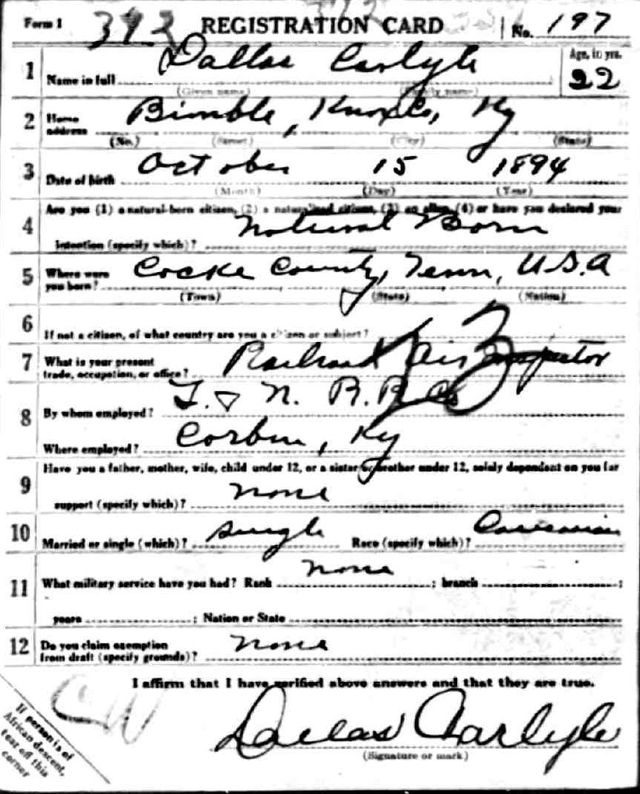 Form 1 REGISTRATION CARD No. 197
1 Name in full Dallas Carlyle Age, in yrs. 22
(Given name) (Family name)
2 Home address Bimble, Knox Co, Ky
(No.) (Street) (City) (State)
3 Date of birth October 15 1894
(Month) (Day) (Year)
4 Are you (1) a natural-born citizen, (2) a naturalized citizen, (3) an alien, (4) or have you declared your
intention (specify which)? Natural Born
5 Where were you born? Cocke County, Tenn, U.S.A
(Town) (State) (Nation)
6 If not a citizen, of what country are you a citizen or subject?
7 What is your present trade, occupation, or office? Railroad Air Inspector
8 By whom employed? L. & N. R.R. Co
Where employed? Corbin, Ky
9 Have you a father, mother, wife, child under 12, or a sister or brother under 12, solely dependent on you for
support (specify which)? None
10 Married or single (which)? Single Race (specify which)? Caucasian
11 What military service have you had? Rank None ; branch ;
years ; Nation or State
12 Do you claim exemption from draft (specify grounds)? None
I affirm that I have verified above answers and that they are true.
Dallas Carlyle
(Signature or mark)
If person is of
African descent,
tear off this
corner